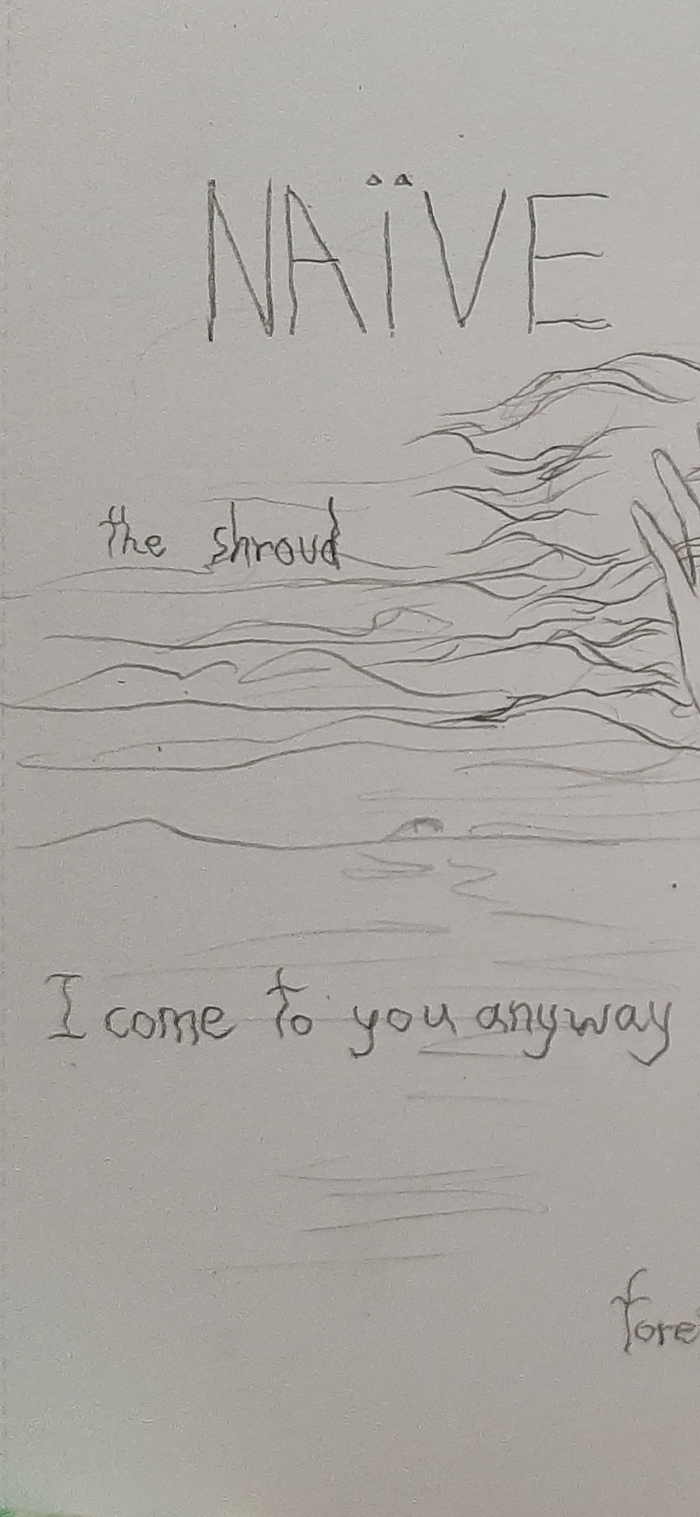 NAÏVE
the shroud
I come to you anyway
fore